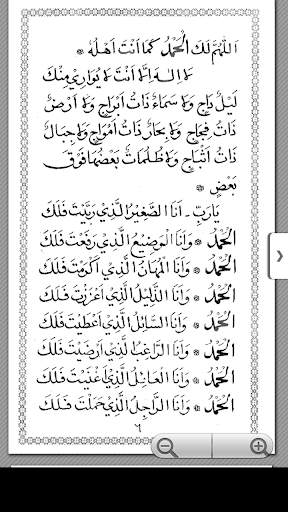 اَللّٰهُمَّ لَكَ الْحَمْدُ كَمَا اَنْتَ اَهْلُهُ ❊
لَا اِلٰهَ اِلَّا اَنْتَ لَا يُوَارِيْ مِنْكَ
لَيْلٌ دَاجٍ وَلَا سَمَاءٌ ذَاتُ اَبْرَاجٍ وَلَا اَرْضٌ
ذَاتُ فِجَاجٍ وَلَا بِحَارٌ ذَاتُ اَمْوَاجٍ وَلَا جِبَالٌ
ذَاتُ اَثْبَاجٍ وَلَا ظُلُمَاتٌ بَعْضُهَا فَوْقَ
بَعْضٍ ❊
يَارَبِّ ـ اَنَا الصَّغِيْرُ الَّذِيْ رَبَّيْتَ فَلَكَ
الْحَمْدُ ❊ وَاَنَا الْوَضِيْعُ الَّذِيْ رَفَعْتَ فَلَكَ
الْحَمْدُ ❊ وَاَنَا الْمُهَانُ الَّذِيْ اَكْرَمْتَ فَلَكَ
الْحَمْدُ ❊ وَاَنَا الذَّلِيْلُ الَّذِيْ اَعْزَزْتَ فَلَكَ
الْحَمْدُ ❊ وَاَنَا السَّائِلُ الَّذِيْ اَعْطَيْتَ فَلَكَ
الْحَمْدُ ❊ وَاَنَا الرَّاغِبُ الَّذِيْ اَرْضَيْتَ فَلَكَ
الْحَمْدُ ❊ وَاَنَا الْعَائِلُ الَّذِيْ اَغْنَيْتَ فَلَكَ
الْحَمْدُ ❊ وَاَنَا الرَّاجِلُ الَّذِيْ حَمَلْتَ فَلَكَ
٦